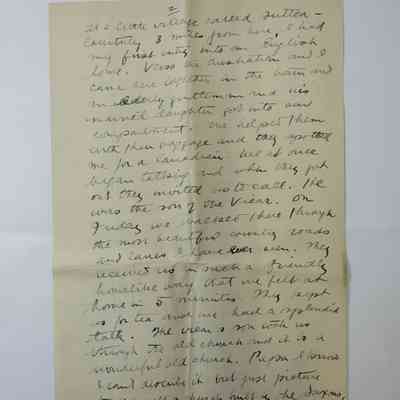 2
at a little village called Sutton-
Courtney 3 miles from here, I had
my first entry into an English
home. Voss an Australian and I
came here together in the train and
an elderly gentleman and his
married daughter got into our
compartment. We helped them
with their baggage and they spotted
me for a Canadian. We at once
began talking and when they got
out they invited us to call. He
was the son of the Vicar. On
Friday we walked there through
the most beautiful country roads
and lanes I have ever seen. They
received us in such a friendly
homelike way that we felt at
home in 5 minutes. They kept
us for tea and we had a splendid
talk. The vicar's son took us
through the old church and it is a
wonderful old church. I
can't describe it but just picture
a church built by the Saxons,